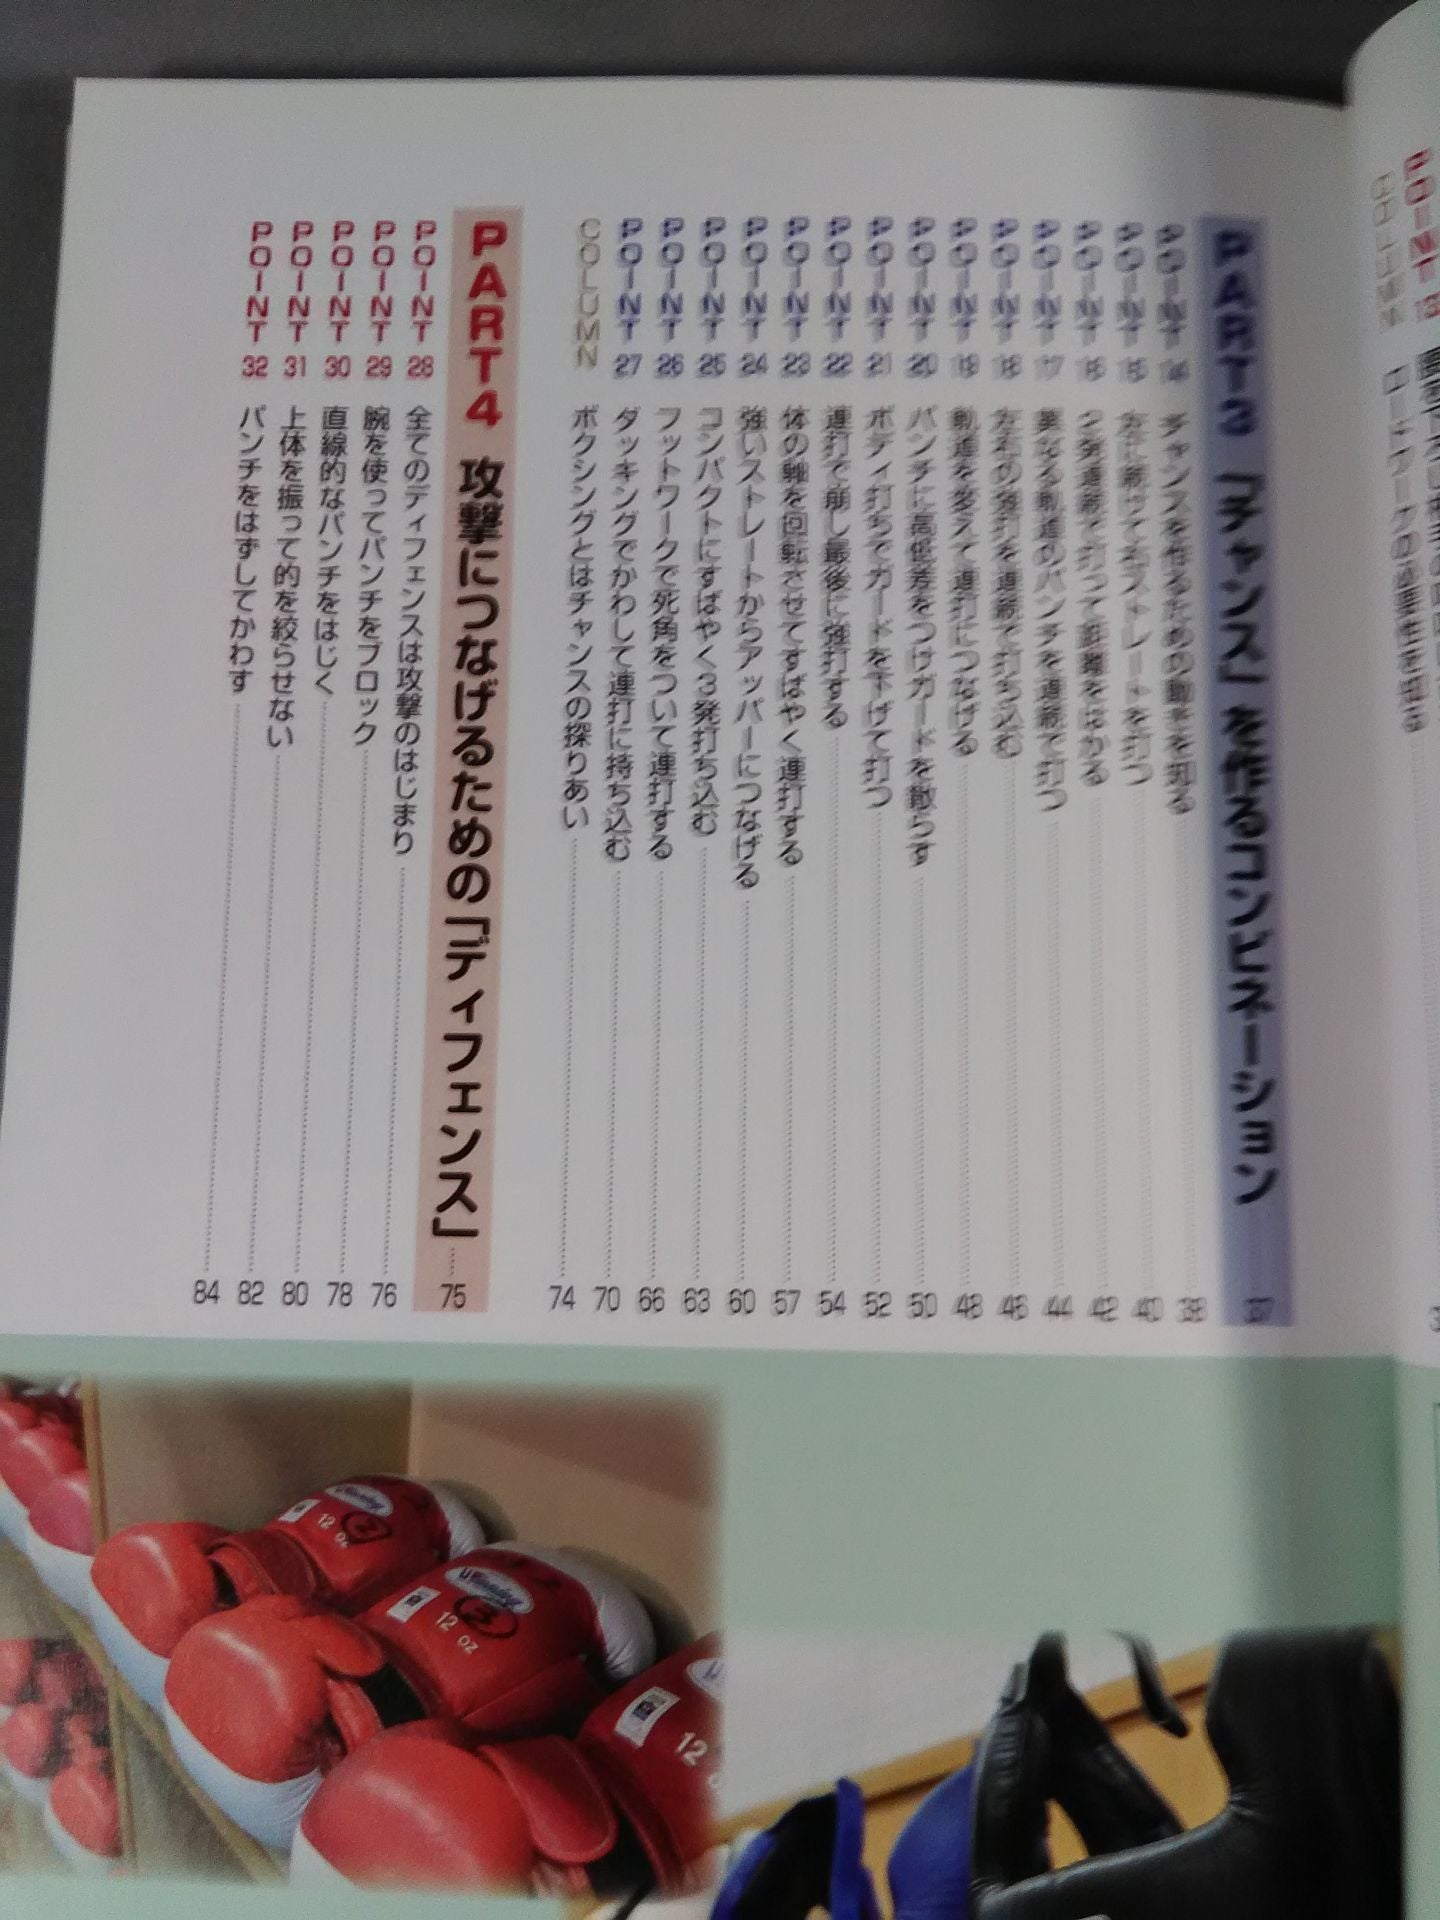 POINT 13
COLUMN
PART3 「チャンス」を作るコンビネーション 37
POINT 14 チャンスを作るための動きを知る 38
POINT 15 左に続けて右ストレートを打つ 40
POINT 16 2発連続で打って距離をはかる 42
POINT 17 異なる軌道のパンチを連続で打つ 44
POINT 18 左右の強打を連続で打ち込む 46
POINT 19 軌道を変えて連打につなげる 48
POINT 20 パンチに高低差をつけガードを散らす 50
POINT 21 ボディ打ちでガードを下げて打つ 52
POINT 22 連打で崩し最後に強打する 54
POINT 23 体の軸を回転させてすばやく連打する 57
POINT 24 強いストレートからアッパーにつなげる 60
POINT 25 コンパクトにすばやく3発打ち込む 63
POINT 26 フットワークで死角をついて連打する 66
POINT 27 ダッキングでかわして連打に持ち込む 70
COLUMN ボクシングとはチャンスの探りあい 74
PART4 攻撃につなげるための「ディフェンス」 75
POINT 28 全てのディフェンスは攻撃のはじまり 76
POINT 29 腕を使ってパンチをブロック 78
POINT 30 直線的なパンチをはじく 80
POINT 31 上体を振って的を絞らせない 82
POINT 32 パンチをはずしてかわす 84
Winning
2
12 oz
Winning
3
12 oz
12